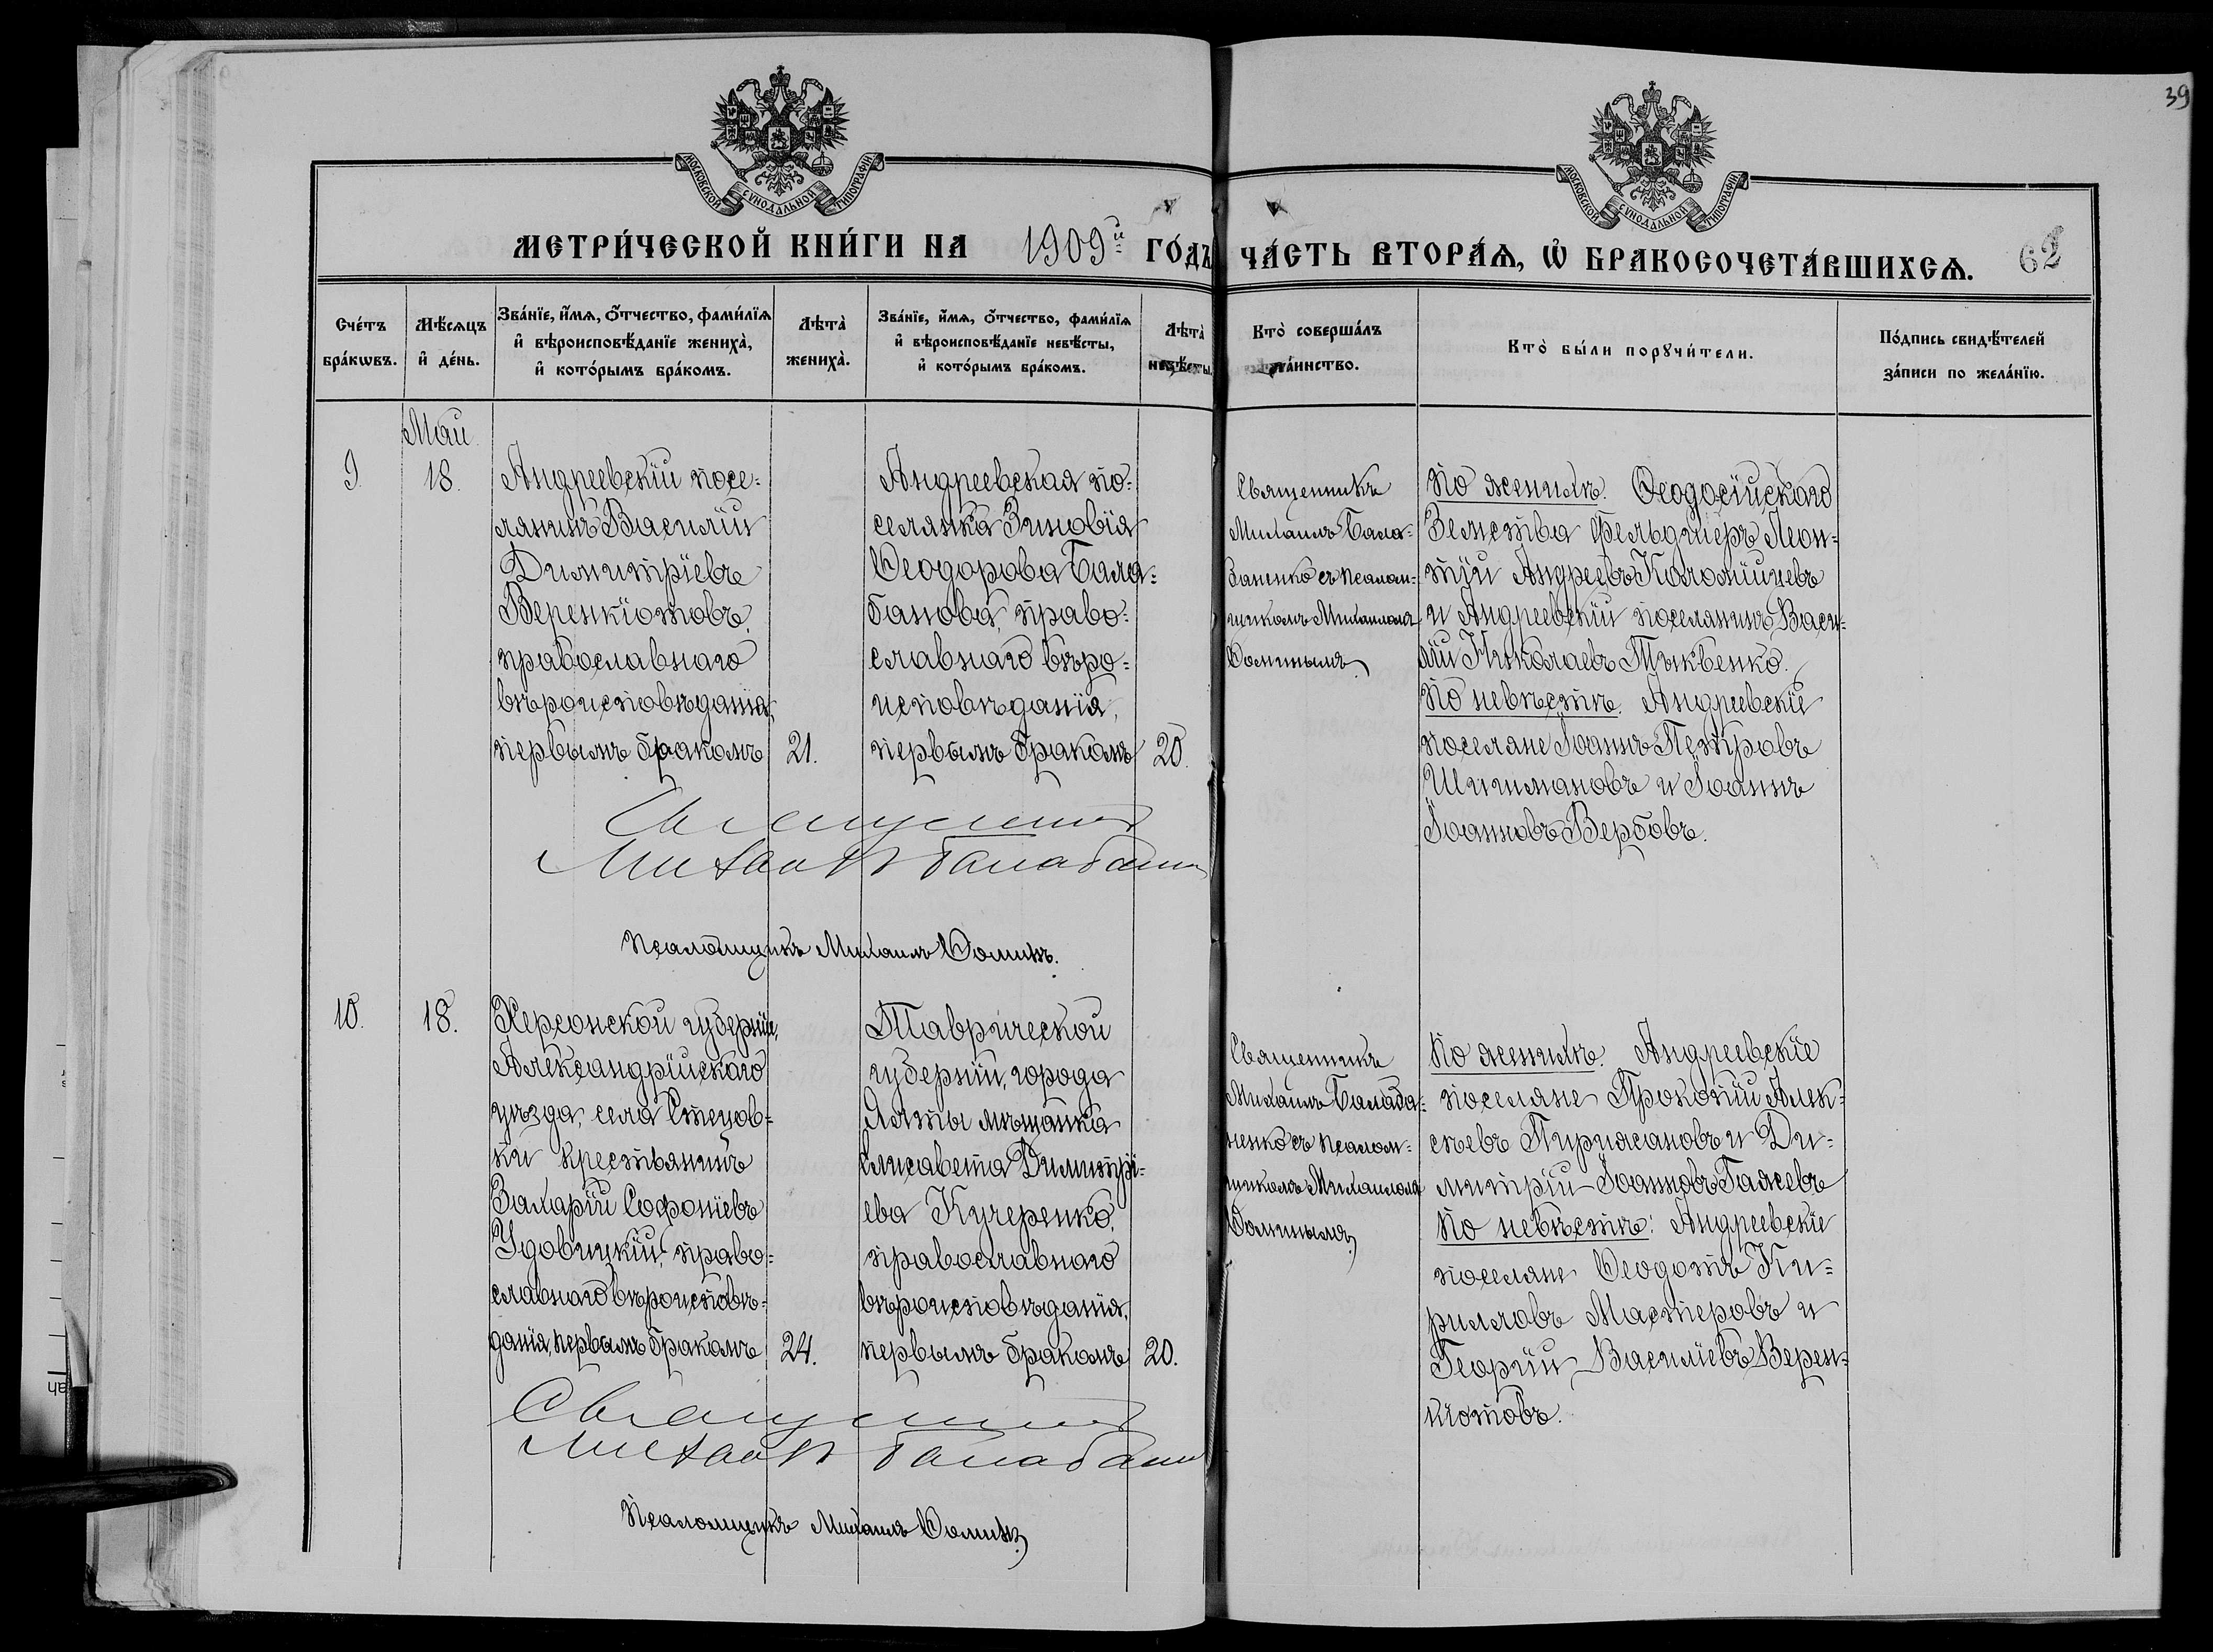 39
МОСКОВСКОЙ СѴНОДАЛЬНОЙ ТИПОГРАФІИ
МОСКОВСКОЙ СѴНОДАЛЬНОЙ ТИПОГРАФІИ
МЕТРИ́ЧЕСКОЙ КНИ́ГИ НА 1909й ГО́ДЪ
ЧА́СТЬ ВТОРА́Ѧ, Ѽ БРАКОСОЧЕТА́ВШИХСѦ.
62
Сче́тъ бра́кѡвъ.
Мѣ́сѧцъ и҆ де́нь.
Зва́нїе, и҆́мѧ, ѻ҆́тчество, фами́лїѧ
и҆ вѣроисповѣ́данїе жениха̀,
и҆ кото́рымъ бра́комъ.
Лѣта̀ жениха̀.
Зва́нїе, и҆́мѧ, ѻ҆́тчество, фами́лїѧ
и҆ вѣроисповѣ́данїе невѣ́сты,
и҆ кото́рымъ бра́комъ.
Лѣта̀ невѣ́сты.
Кто̀ соверша́лъ та́инство.
Кто̀ бы́ли порꙋчи́тели.
По́дпись свидѣ́телей
за́писи по жела́нїю.
Май
9.
18.
Андреевскій посе=
лянинъ Василій
Димитріевъ
Веренкіотовъ,
православнаго
вѣроисповѣданія,
первымъ бракомъ
21.
Андреевская по=
селянка Зиновія
Ѳеодорова Бала=
банова, право=
славнаго вѣро=
исповѣданія,
первымъ бракомъ
20.
Священникъ
Михаилъ Бала=
баненко съ псалом=
щикомъ Михаиломъ
Ѳоминымъ.
По женихѣ: Ѳеодосійскаго
Земства фельдшеръ Леон=
тій Андреевъ Коломійцевъ
и Андреевскій поселянинъ Васи=
лій Николаевъ Тыквенко.
По невѣстѣ: Андреевскіе
поселяне Іоаннъ Петровъ
Шишмановъ и Іоаннъ
Іоанновъ Вербовъ.
Священникъ
Михаилъ Балабан
Псаломщикъ Михаилъ Ѳоминъ.
10.
18.
Херсонской губерніи,
Александрійскаго
уѣзда, села Стецов=
ки крестьянинъ
Захарій Софоніевъ
Удовицкій, право=
славнаго вѣроисповѣ=
данія, первымъ бракомъ
24.
Таврической
губерніи, города
Ялты мѣщанка
Елисавета Димитрі=
ева Кучеренко,
православнаго
вѣроисповѣданія,
первымъ бракомъ
20.
Священникъ
Михаилъ Балаба=
ненко съ псалом=
щикомъ Михаиломъ
Ѳоминымъ.
По женихѣ: Андреевскіе
поселяне Прокопій Алек=
сѣевъ Пириясановъ и Ди=
митрій Іоанновъ Гаяевъ
По невѣстѣ: Андреевскіе
поселяне Ѳеодотъ Ки=
рилловъ Мастеровъ и
Георгій Василіевъ Верен=
кіотовъ.
Священникъ
Михаилъ Балабан
Псаломщикъ Михаилъ Ѳоминъ.